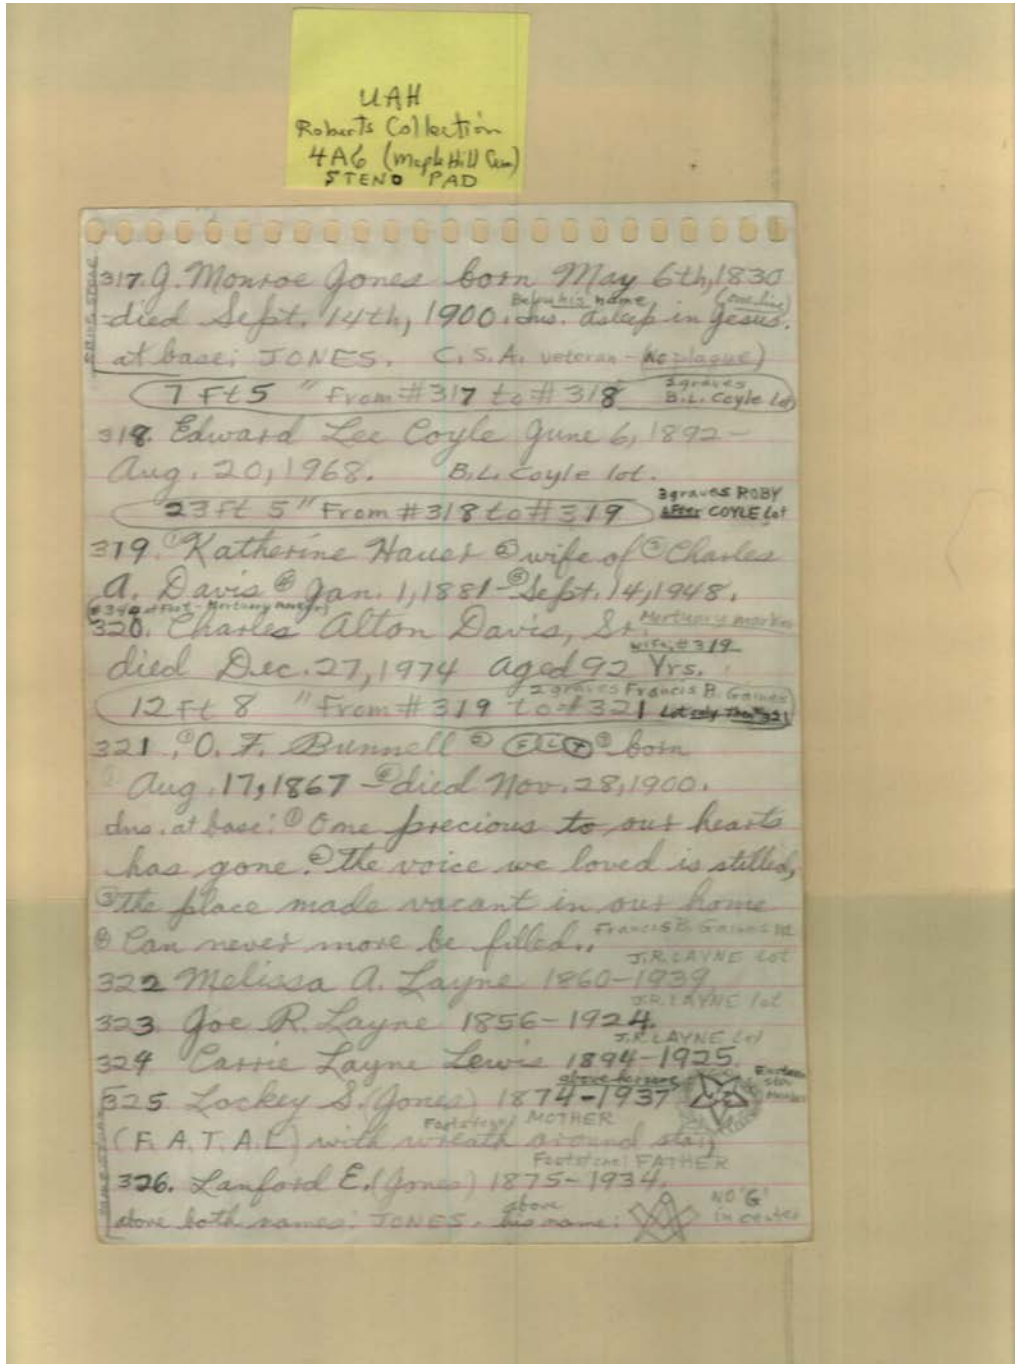 UAH
Roberts Collection
4A6 (Maple Hill Cem)
STENO PAD
317. J. Monroe Jones born May 6th, 1830
Below his name (one line)
died Sept. 14th, 1900. Ins. asleep in Jesus.
at base; JONES. C.S.A. veteran - (No plaque)
7 Ft 5 " From #317 to #318 2 graves
B.L. Coyle Lot
318. Edward Lee Coyle June 6, 1892-
Aug. 20, 1968. B.L. Coyle lot.
23 Ft 5" From #318 to #319 3 graves ROBY
after COYLE Lot
319. ① Katherine Hauer ② wife of ③ Charles
A. Davis ④ Jan. 1, 1881 - ⑤ Sept. 14, 1948.
#340 at Foot - Mortuary marker)
320. Charles Alton Davis, Sr. Mortuary marker
wife, #319
died Dec. 27, 1974 aged 92 Yrs.
12 Ft 8 " From #319 to #321 2 graves Francis B. Gaines
Lot only Then #321
321. ① O. F. Bunnell ② F L T ③ born
Aug. 17, 1867 - ④ died Nov. 28, 1900.
Ins. at base: ① One precious to our hearts
has gone. ② The voice we loved is stilled,
③ The place made vacant in our home
④ Can never more be filled.. Francis B. Gaines
J.R. LAYNE Lot
322 Melissa A. Layne 1860-1939
J.R. LAYNE lot
323. Joe R. Layne 1856-1924.
J.R. LAYNE Lot
324 Carrie Layne Lewis 1894-1925.
above her name Eastern
Star
325 Lockey S. (Jones) 1874-1937
Footstone MOTHER
(F. A. T. A. L) with wreath around star
Footstone FATHER
326. Lanford E. (Jones) 1875-1934.
above both names: JONES. above his name: NO "G"
in center